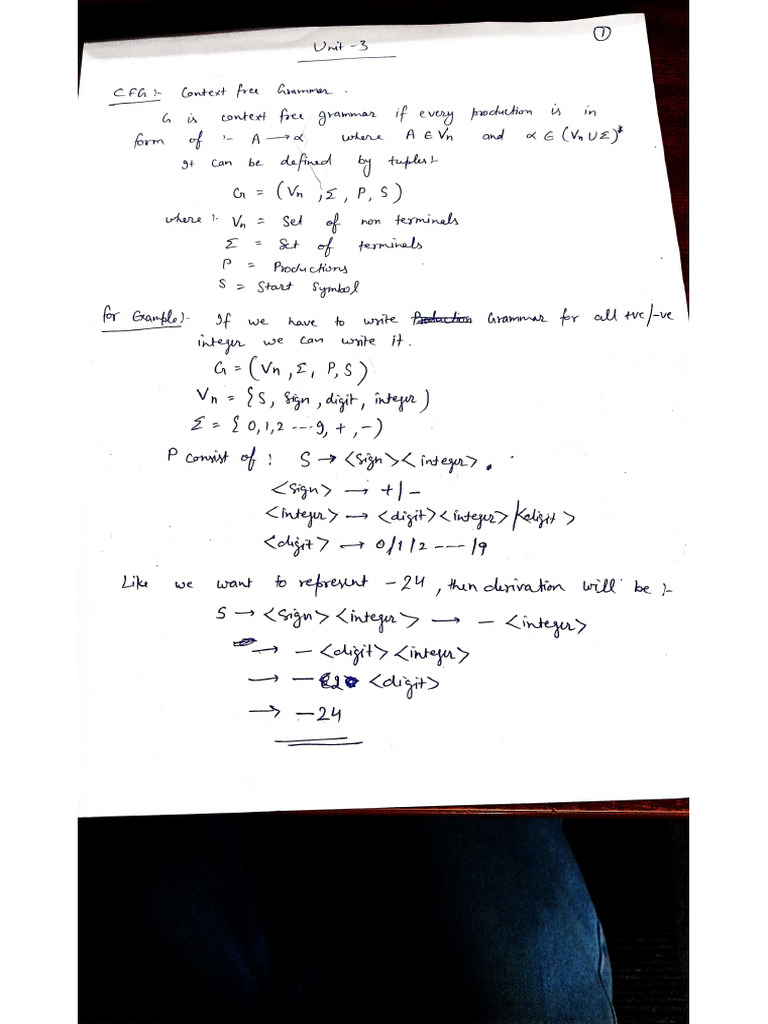 ①
Unit - 3
CFG :- Context free Grammer.
G is context free grammar if every production is in
form of :- A → α where A ∈ Vn and α ∈ (Vn ∪ Σ)*
It can be defined by tuples :-
G = (Vn, Σ, P, S)
where :- Vn = Set of non terminals
Σ = Set of terminals
P = Productions
S = Start Symbol
for Example :- If we have to write Production Grammar for all +ve/-ve
integer we can write it.
G = (Vn, Σ, P, S)
Vn = {S, Sign, digit, integer)
Σ = { 0, 1, 2 ---- 9, +, -)
P consist of : S → <Sign><integer>.
<Sign> → +/-
<integer> → <digit><integer>/<digit>
<digit> → 0/1/2 ---- /9
Like we want to represent -24, then derivation will be :-
S → <Sign><integer> → - <integer>
→ - <digit><integer>
→ - 2 <digit>
→ -24